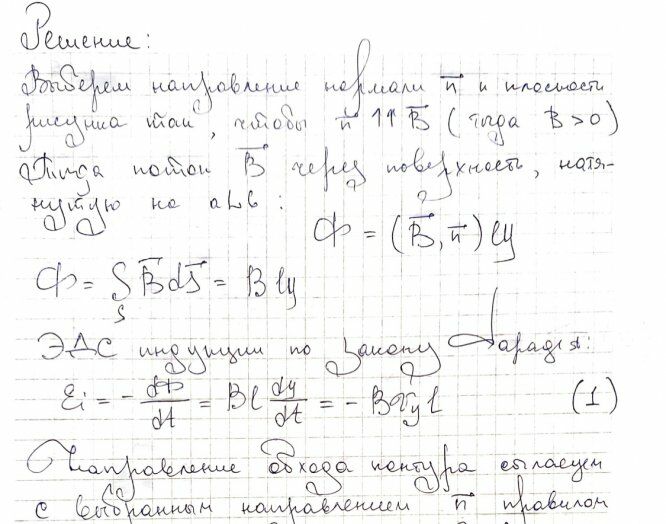 Решение:
Выберем направление нормали n⃗ к плоскости
рисунка так, чтобы n⃗ ↑↑ B⃗ (тогда B > 0)
Тогда поток B⃗ через поверхность, натя-
нутую на aLb:
Ф = (B⃗, n⃗) ly
Ф = ∫_S B⃗ dS⃗ = B ly
ЭДС индукции по закону Фарадея:
Ei = - dФ/dt = Bl dy/dt = - Bv_y l (1)
Направление обхода контура согласуем
с выбранным направлением n⃗ правилом